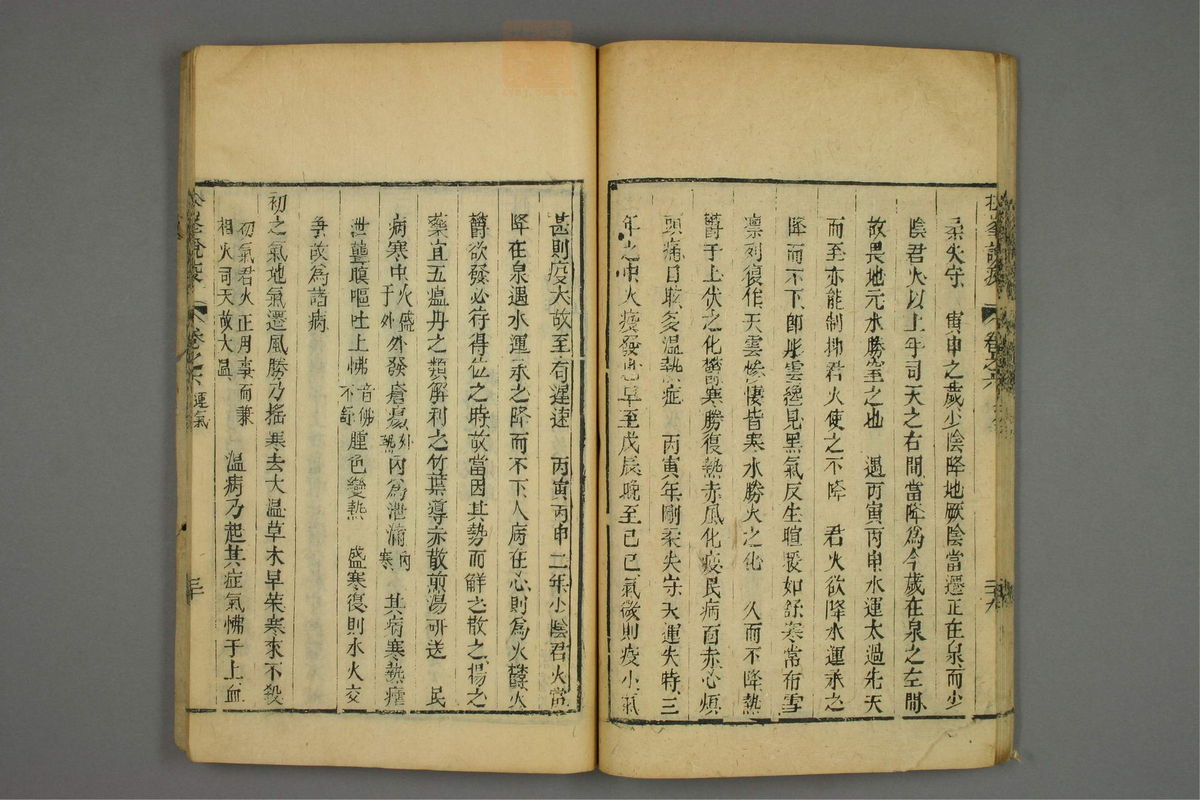 柔失守　寅申之歲少陰降地厥陰當遷正在泉而少
陰君火以上年司天之右間當降為今歲在泉之左間
故畏地元水勝窒之也　遇丙寅丙申水運太過先天
而至亦能制抑君火使之不降　君火欲降水運承之
降而不下即彤雲纔見黑氣反生暄暖如舒寒常布雪
凛冽復作天雲慘悽皆寒水勝火之化　久而不降熱
鬱于上伏之化鬱寒勝復熱赤風化疫民病面赤心煩
頭痛目眩多温熱症　丙寅年剛柔失守天運失時三
年之中火疫發也早至戊辰晚至己巳氣微則疫小氣
甚則疫大故至有遲速　丙寅丙申二年少陰君火當
降在泉遇水運承之降而不下人病在心則為火鬱火
鬱欲發必待得位之時故當因其勢而解之散之揚之
藥宜五瘟丹之類解利之竹葉導赤散煎湯研送　民
病寒中火盛于外外發瘡瘍外熱內為泄滿內寒　其病寒熱瘧
泄聾瞑嘔吐上怫音佛不舒腫色變熱　盛寒復則水火交
爭故為諸病
初之氣地氣遷風勝乃搖寒去大温草木早榮寒來不殺
初氣君火正用事而兼相火司天故大温　温病乃起其症氣怫于上血
松峯說疫　卷之六　運氣
三十